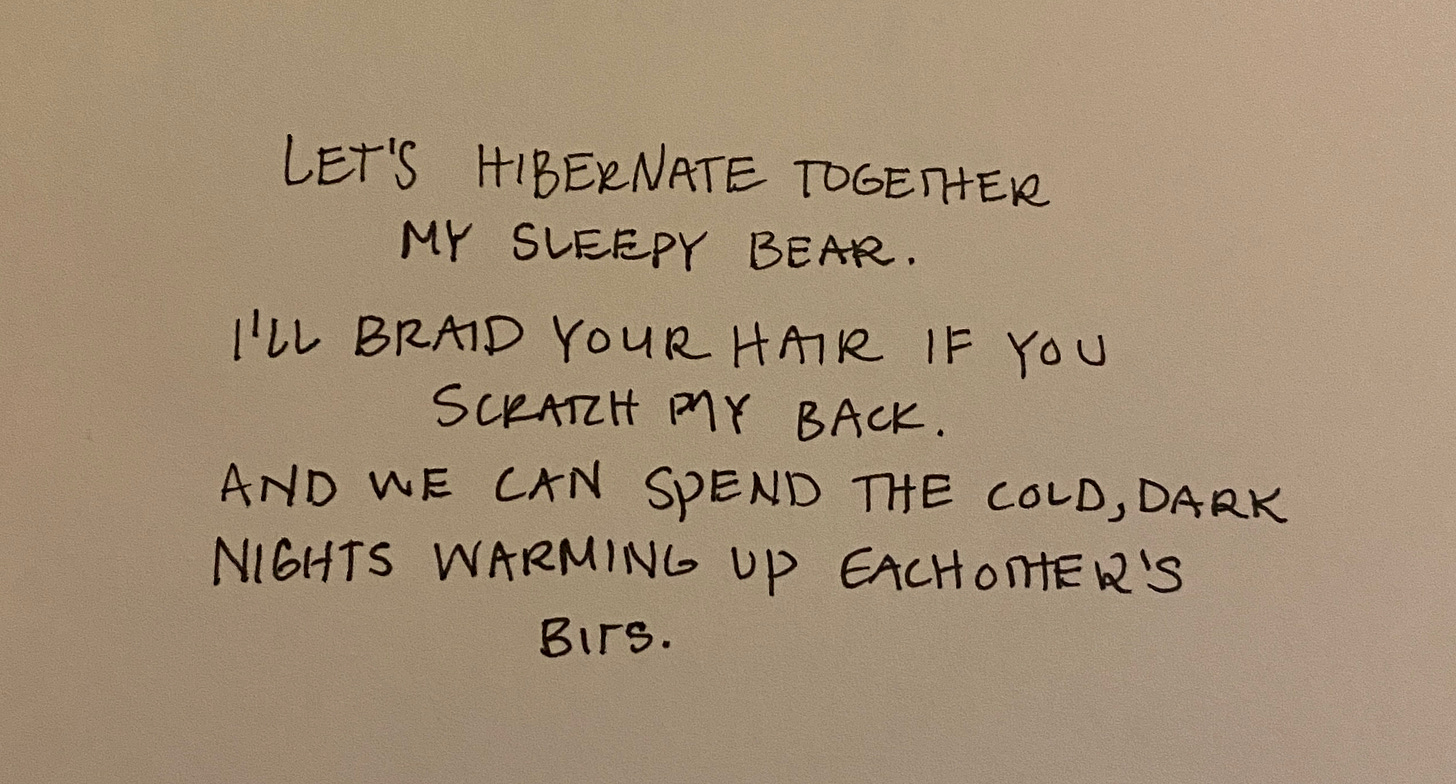 LET'S HIBERNATE TOGETHER
MY SLEEPY BEAR.
I'LL BRAID YOUR HAIR IF YOU
SCRATCH MY BACK.
AND WE CAN SPEND THE COLD, DARK
NIGHTS WARMING UP EACHOTHER'S
BITS.